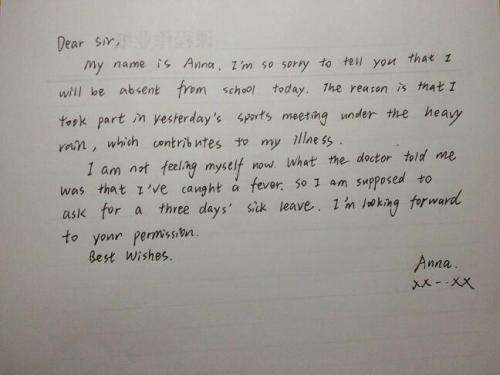 Dear Sir,
My name is Anna. I'm so sorry to tell you that I
will be absent from school today. The reason is that I
took part in yesterday's sports meeting under the heavy
rain, which contributes to my illness.
I am not feeling myself now. What the doctor told me
was that I've caught a fever. So I am supposed to
ask for a three days' sick leave. I'm looking forward
to your permission.
Best Wishes.
Anna.
xx--xx